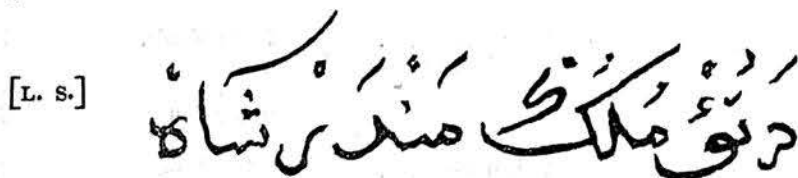 [L. S.] دَتُؤْ مُلُكْ مَنْدَرْ شَاهْ